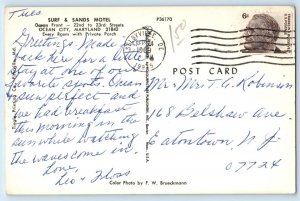 Tues
SURF & SANDS MOTEL
Ocean Front - 22nd to 23rd Streets
OCEAN CITY, MARYLAND 21842
Every Room with Private Porch
P36170
150
6c
POST CARD
Greetings. Made it
back here for a little
stay at one of our
favorite spots. Ocean
is perfect and
we had breakfast
this morning in the
sun while watching
the waves come in.
Love,
Leo & Floss
Mr. Mrs. T. G. Robinson
168 Belshaw Ave.
Eatontown, N J
07724
Color Photo by F. W. Brueckmann